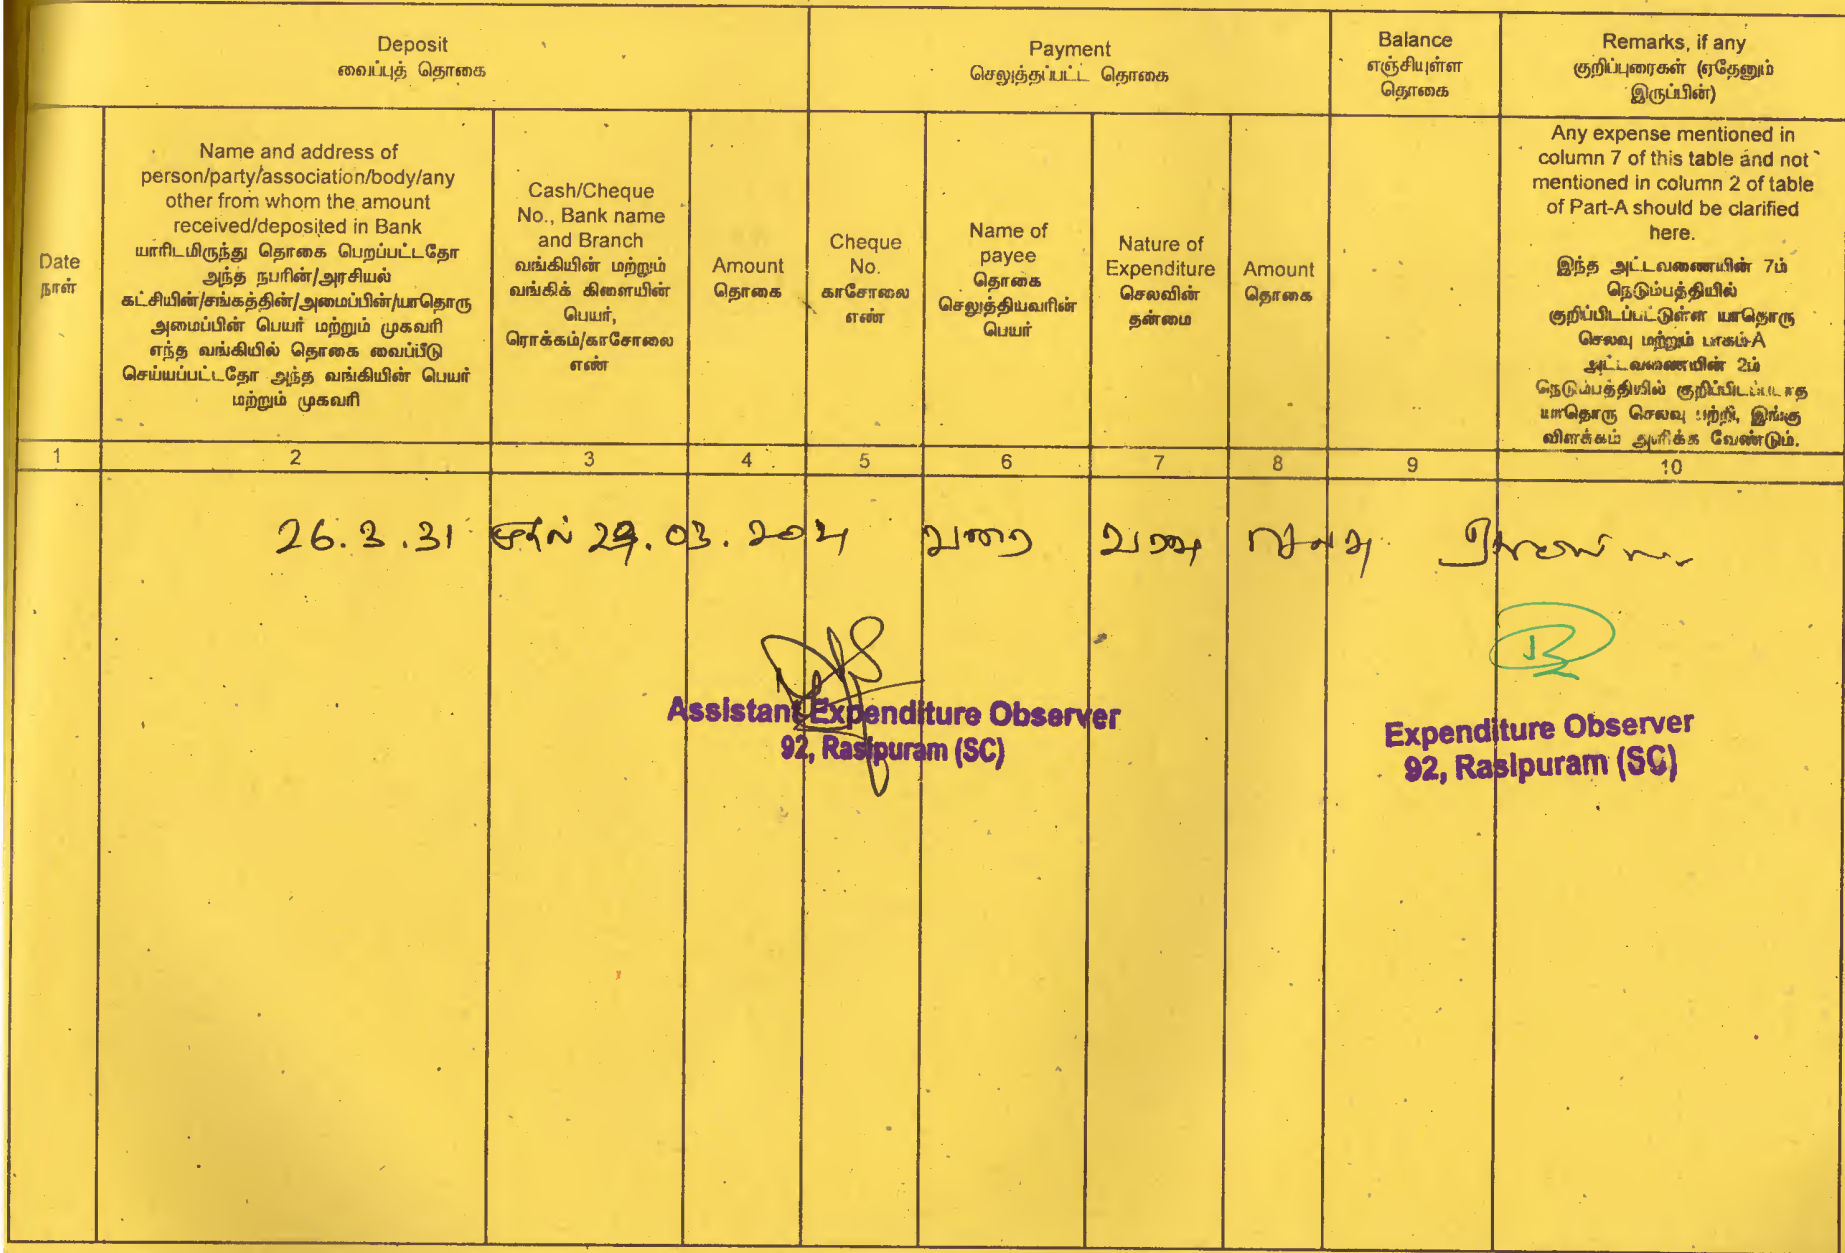 Deposit
வைப்புத் தொகை
Payment
செலுத்தப்பட்ட தொகை
Balance
எஞ்சியுள்ள
தொகை
Remarks, if any
குறிப்புரைகள் (ஏதேனும்
இருப்பின்)
Date
நாள்
Name and address of
person/party/association/body/any
other from whom the amount
received/deposited in Bank
யாரிடமிருந்து தொகை பெறப்பட்டதோ
அந்த நபரின்/அரசியல்
கட்சியின்/சங்கத்தின்/அமைப்பின்/யாதொரு
அமைப்பின் பெயர் மற்றும் முகவரி
எந்த வங்கியில் தொகை வைப்பீடு
செய்யப்பட்டதோ அந்த வங்கியின் பெயர்
மற்றும் முகவரி
Cash/Cheque
No., Bank name
and Branch
வங்கியின் மற்றும்
வங்கிக் கிளையின்
பெயர்,
ரொக்கம்/காசோலை
எண்
Amount
தொகை
Cheque
No.
காசோலை
எண்
Name of
payee
தொகை
செலுத்தியவரின்
பெயர்
Nature of
Expenditure
செலவின்
தன்மை
Amount
தொகை
Any expense mentioned in
column 7 of this table and not
mentioned in column 2 of table
of Part-A should be clarified
here.
இந்த அட்டவணையின் 7ம்
நெடும்பத்தியில்
குறிப்பிடப்பட்டுள்ள யாதொரு
செலவு மற்றும் பாகம்-A
அட்டவணையின் 2ம்
நெடும்பத்தியில் குறிப்பிடப்படாத
யாதொரு செலவு பற்றி, இங்கு
விளக்கம் அளிக்க வேண்டும்.
1 2 3 4 5 6 7 8 9 10
26.3.31 முதல் 29.03.2021 வரை வரவு செலவு
Assistant Expenditure Observer
92, Rasipuram (SC)
Expenditure Observer
92, Rasipuram (SC)